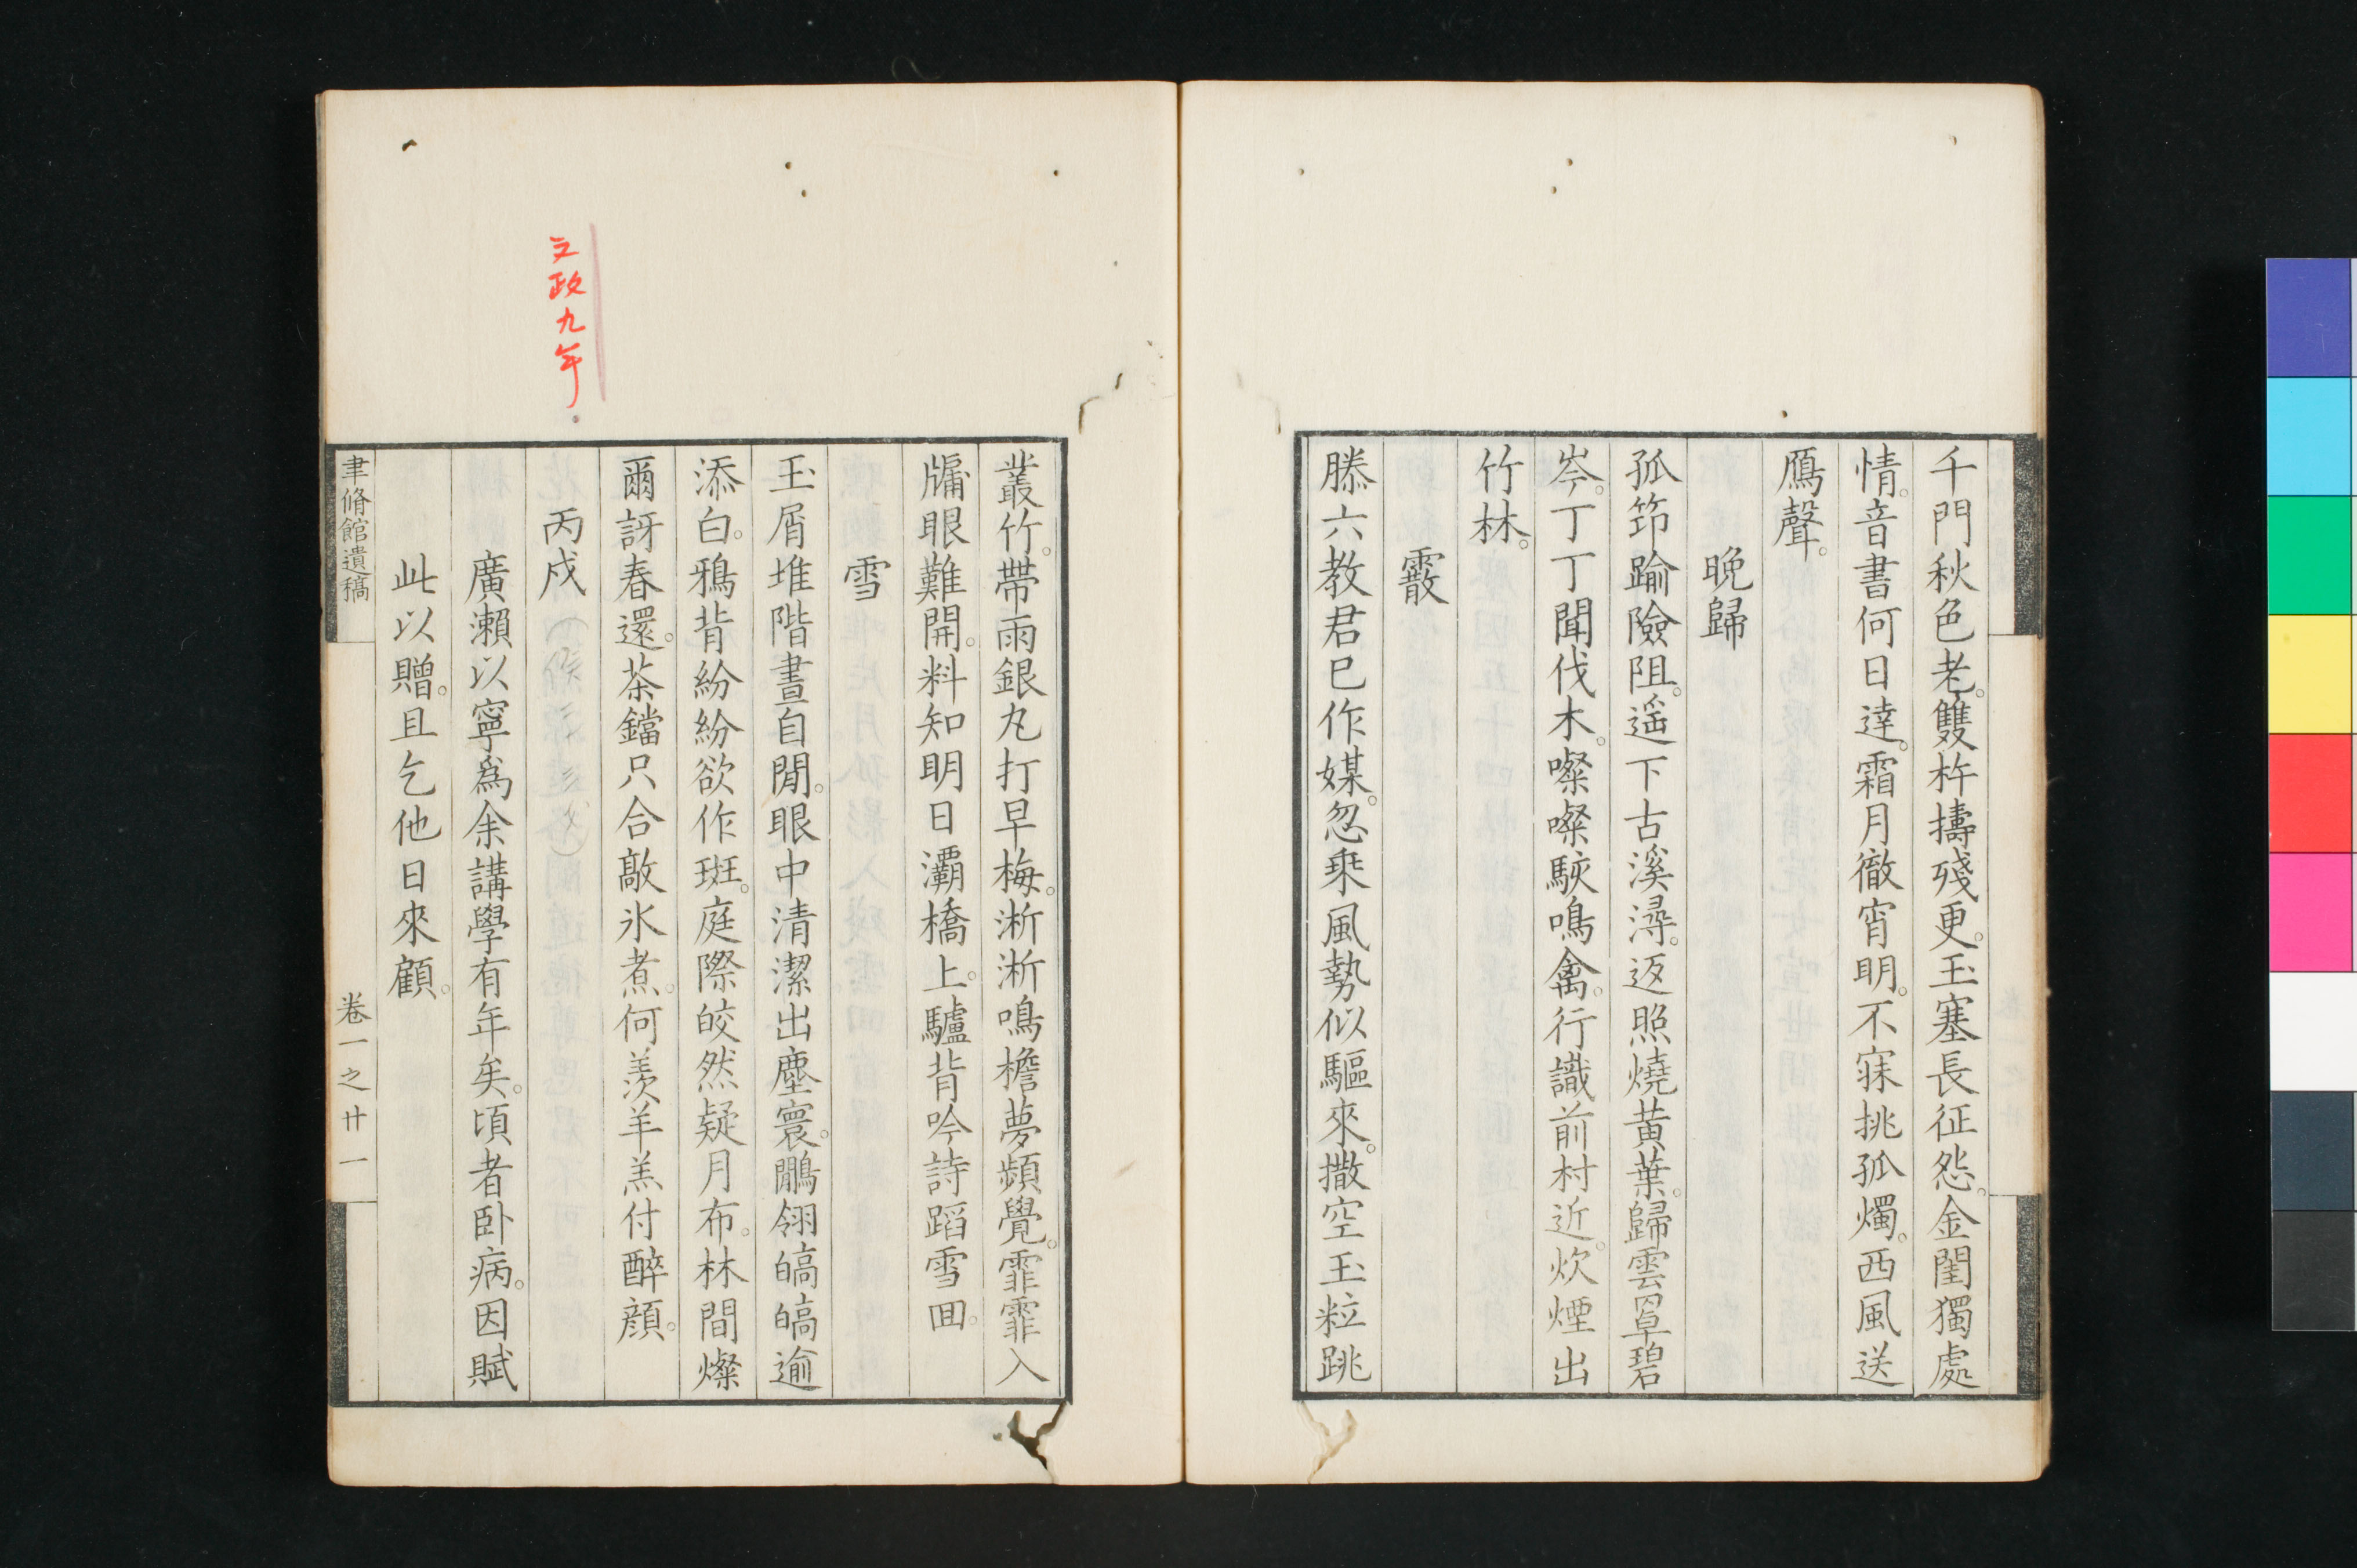 千門秋色老。雙杵擣殘更。玉塞長征怨。金閨獨處
情。音書何日達。霜月徹宵明。不寐挑孤燭。西風送
鴈聲。
晩歸
孤筇踰險阻。遥下古溪潯。返照燒黃葉。歸雲罩碧
岑。丁丁聞伐木。喍喍駭鳴禽。行識前村近。炊煙出
竹林。
霰
滕六教君已作媒。忽乗風勢似驅來。撒空玉粒跳
叢竹。帶雨銀丸打早梅。淅淅鳴檐夢頻覺。霏霏入
牖眼難開。料知明日灞橋上。驢背吟詩蹈雪囬。
雪
玉屑堆階晝自閒。眼中清潔出塵寰。鷳翎皜皜逾
添白。鴉背紛紛欲作斑。庭際皎然疑月布。林間燦
爾訝春還。茶鐺只合敲氷煮。何羨羊羔付醉顔。
文政九年
丙戌
廣瀨以寧爲余講學有年矣。頃者卧病。因賦
此以贈。且乞他日來顧。
聿脩館遺稿
卷一之廿一